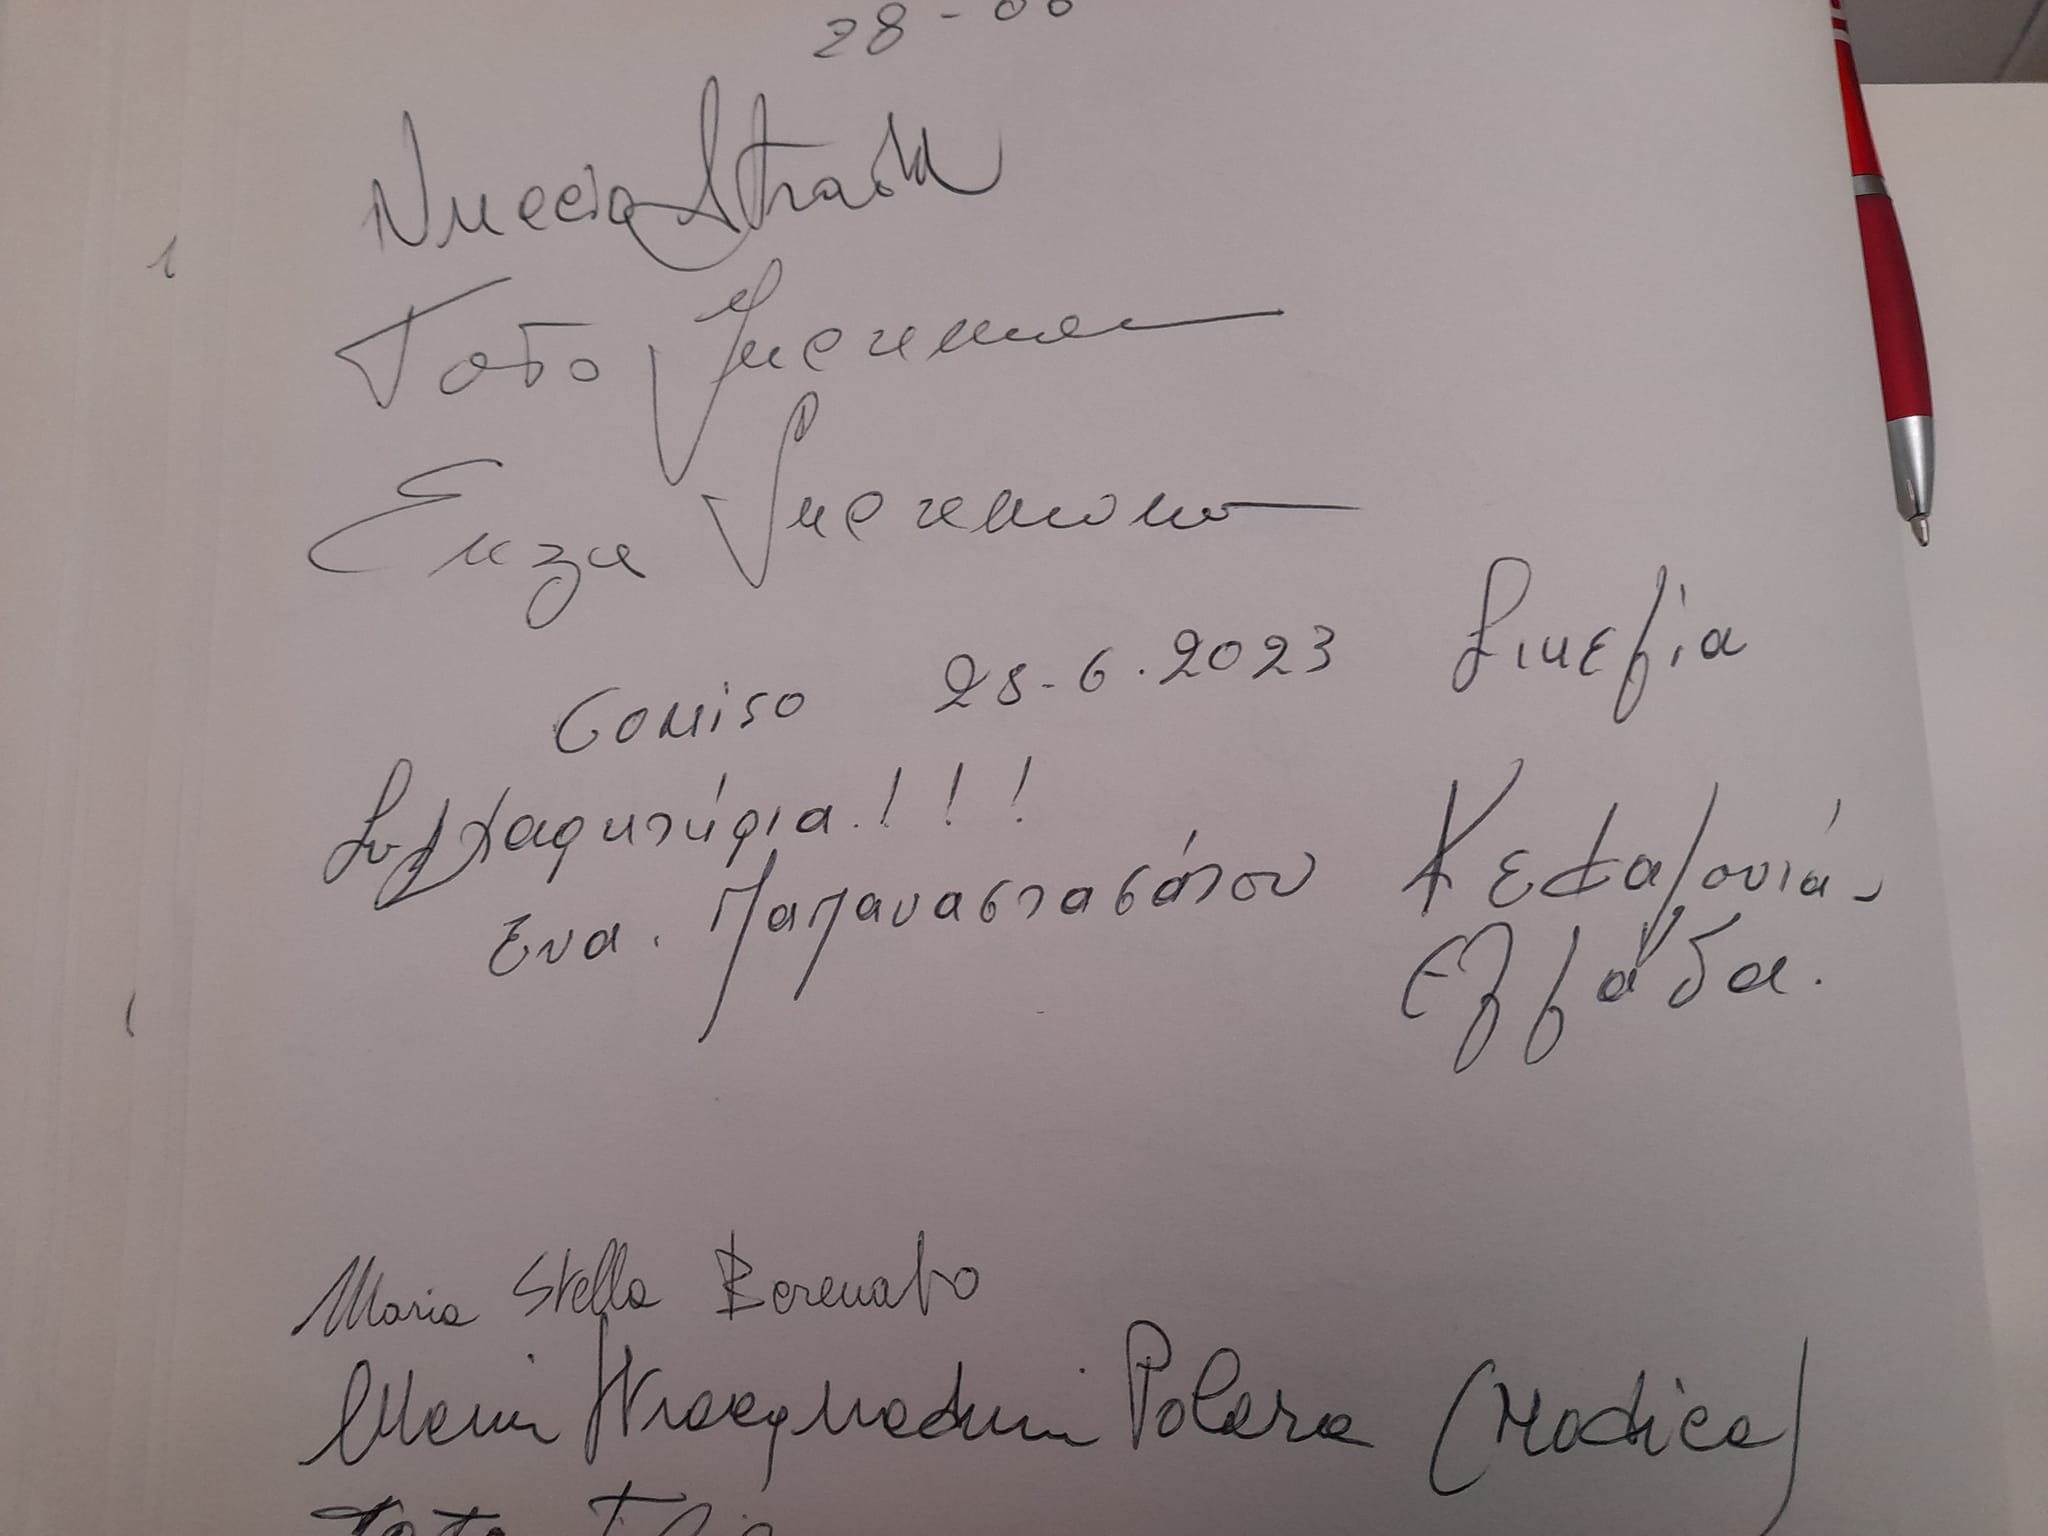 28-06
Nuccia Strada
Totò
Enza
Comiso 28-6.2023 Σικελία
Συγχαρητήρια!!!
Ευα. Παπαναστασάτου Κεφαλονιά-
Ελλάδα.
Maria Stella Berenato
Polara (Modica)